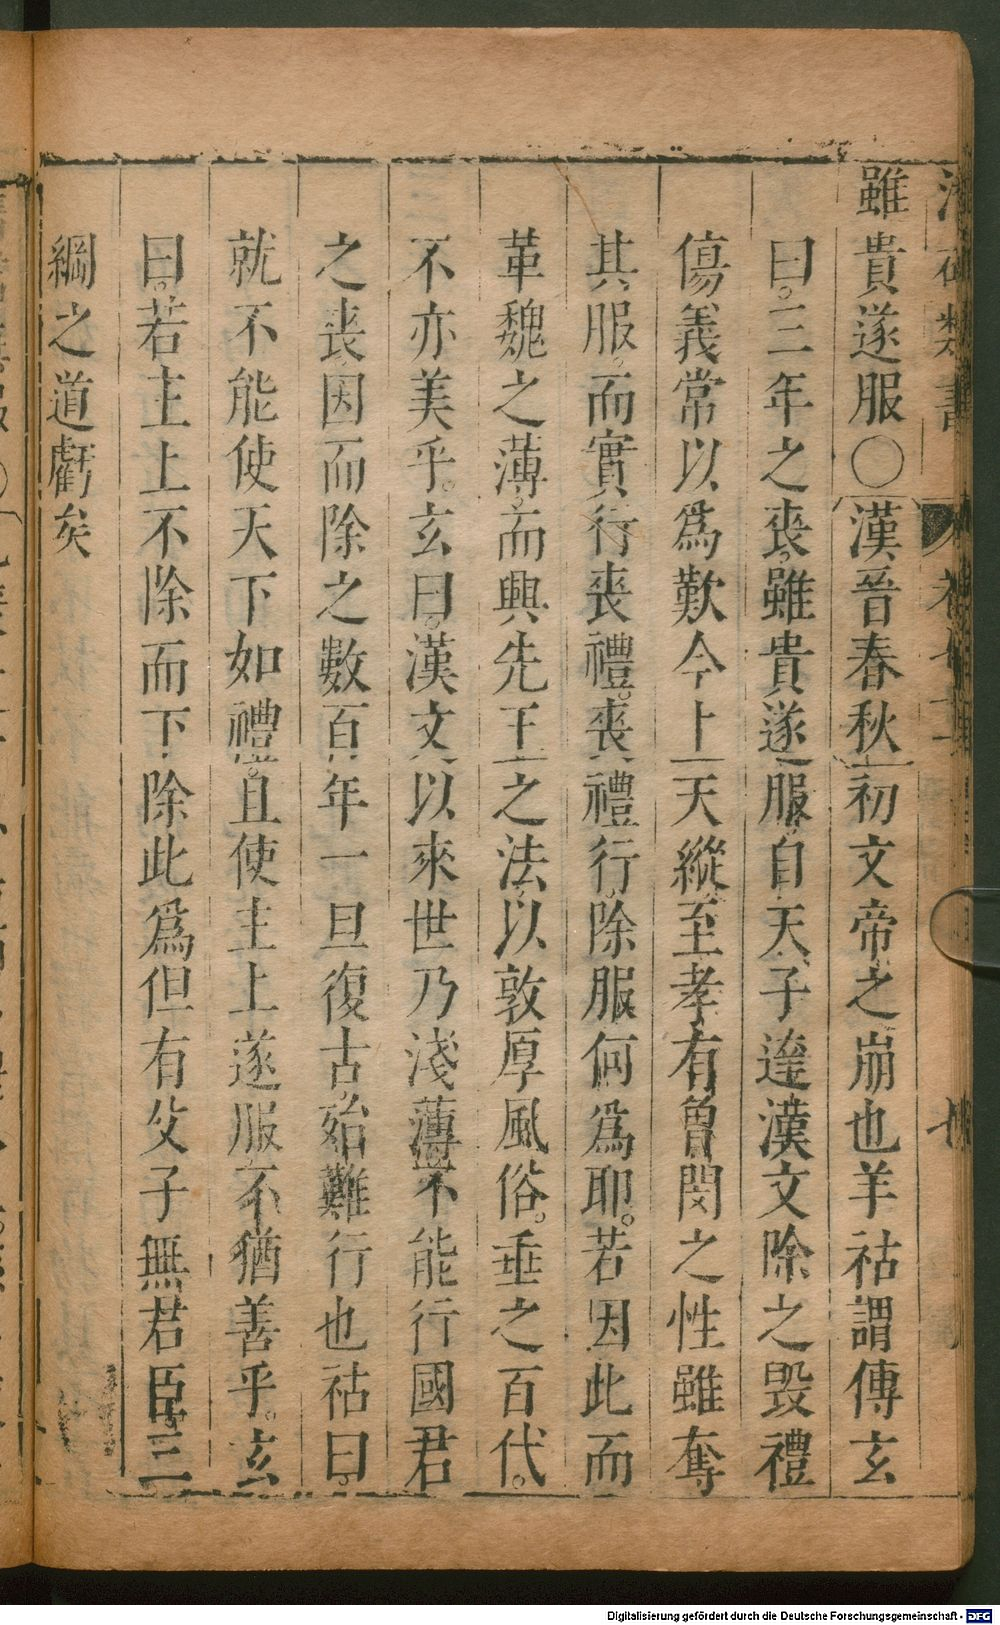 雖貴遂服〇漢晉春秋初文帝之崩也羊祜謂傅玄
曰。三年之喪。雖貴遂服。自天子達。漢文除之毀禮
傷義常以爲歎今上天縱至孝有曾閔之性雖奪
其服。而實行喪禮。喪禮行除服何爲耶。若因此而
革魏之薄。而興先王之法。以敦厚風俗。垂之百代。
不亦美乎。玄曰。漢文以來世乃淺薄不能行國君
之喪。因而除之數百年一旦復古。始難行也祜曰。
就不能使天下如禮。且使主上遂服。不猶善乎。玄
曰。若主上不除而下除此爲但有父子無君臣。三
綱之道虧矣
Digitalisierung gefördert durch die Deutsche Forschungsgemeinschaft - DFG